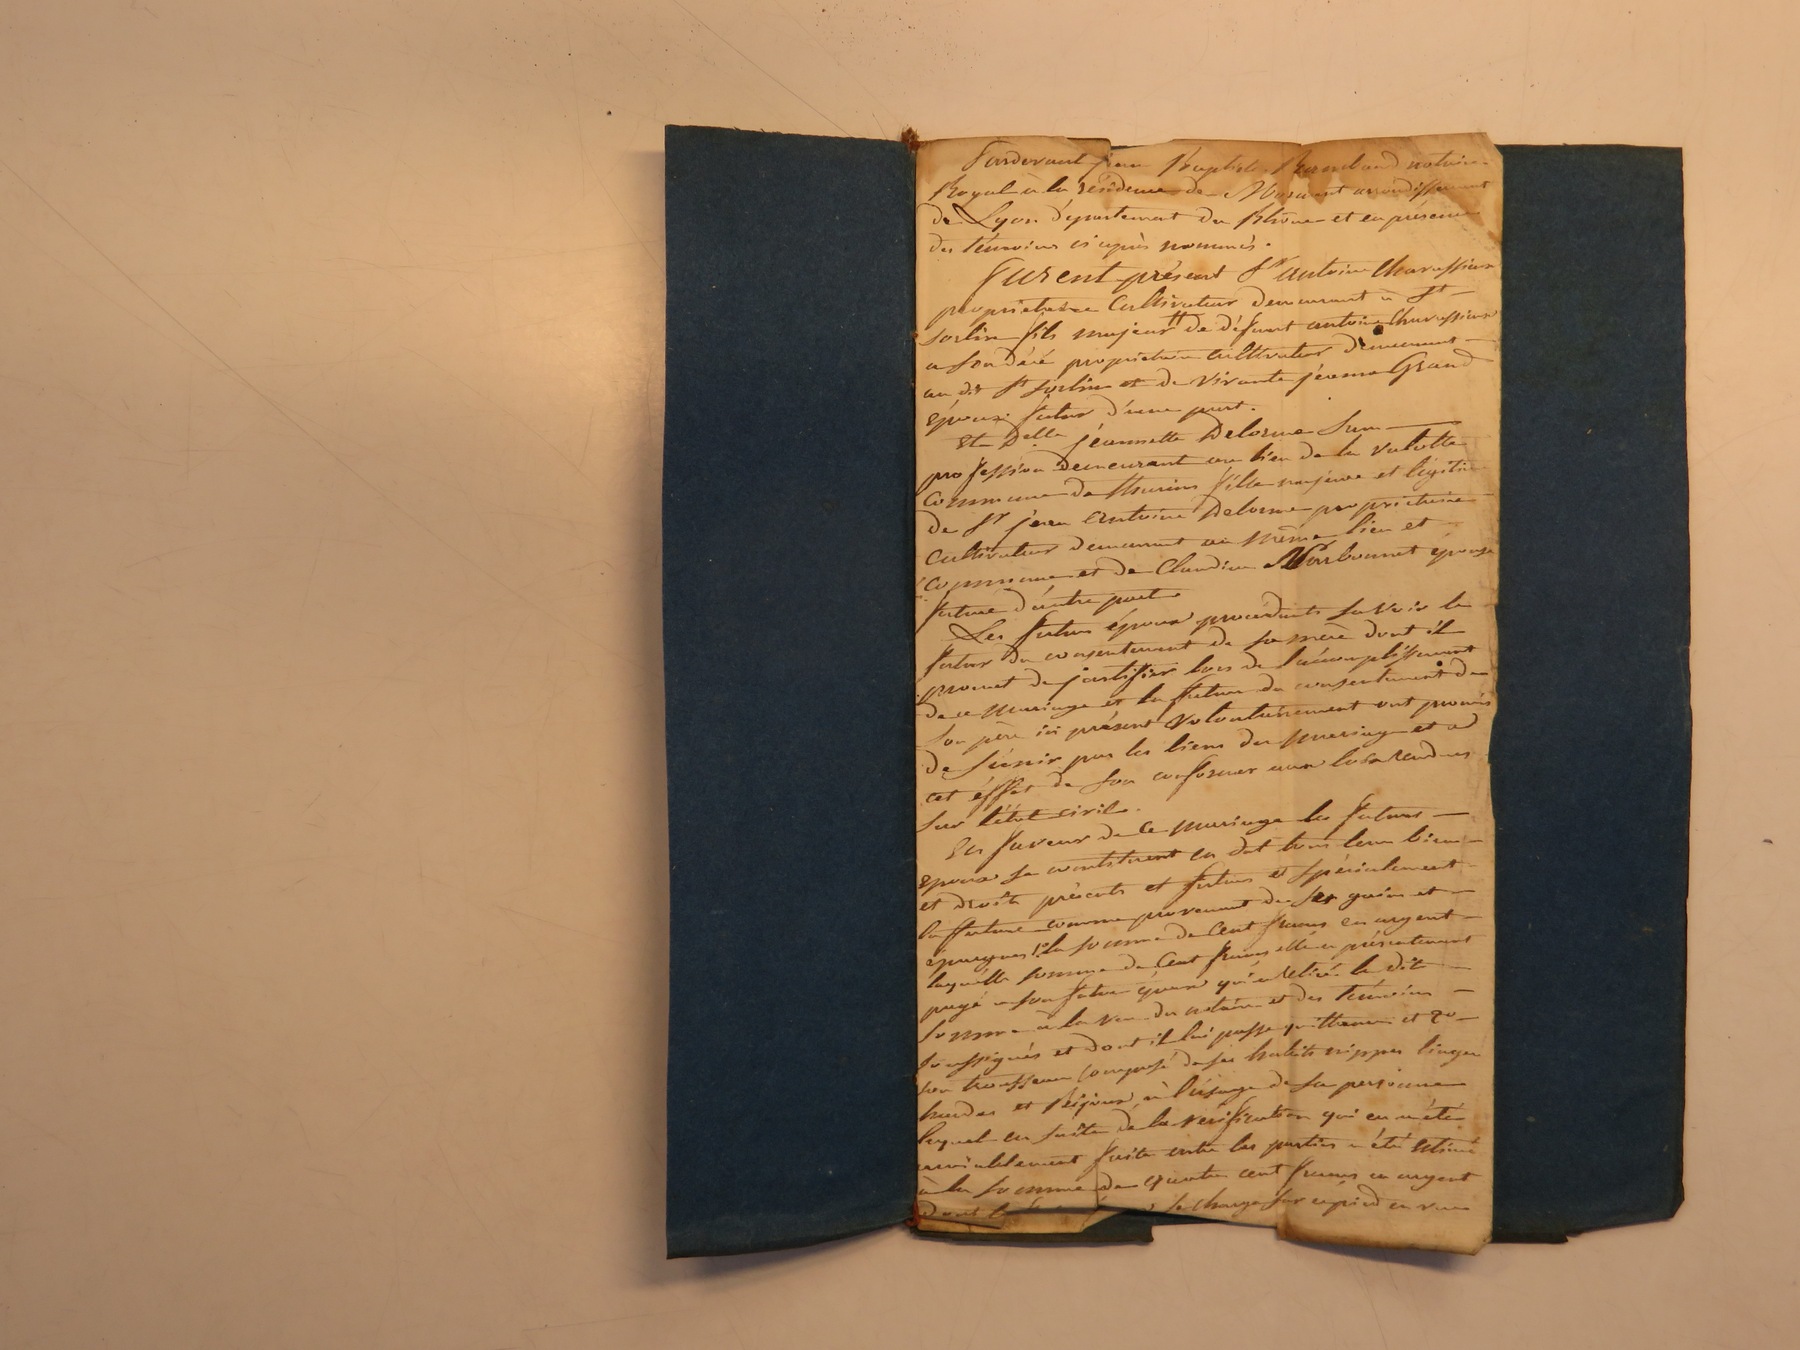 Pardevant jean Baptiste Rambaud notaire
Royal à la résidence de Mornant arrondissement
de Lyon département du Rhône et en présence
des témoins ci après nommés.
Furent présent Sr antoine Charassieux
propriétaire Cultivateur demeurant à St
sorlin fils majeur de défunt antoine Charassieux
a son décé propriétaire cultivateur demeurant
au dit St sorlin et de vivante jeanne Grand
époux futur d'une part.
Et Delle jeannette Delorme sans
profession demeurant au lieu de la valotte
commune de thurins fille majeure et légitime
de Sr jean antoine Delorme propriétaire
Cultivateur demeurant au même lieu et
commune et de Claudine Norbonnet épouse
future d'autre part.
Les futurs époux procédants savoir le
futur du consentement de sa mère dont il
promet de justifier lors de l'accomplissement
de ce mariage et la future du consentement de
son père ici présent volontairement ont promis
de s'unir par les liens du mariage et a
cet éffet de son conformer aux lois rendues
sur l'état civil.
En faveur de ce mariage les futurs
époux se constituent en dot tous leurs biens
et droits présents et futurs et spécialement
la future comme provenant de ses gains et
épargnes 1° la somme de Cent francs en argent
laquelle somme de Cent francs elle a présentement
payé a son futur époux qui a retiré la dit
somme à la vue du notaire et des témoins
soussignés et dont il lui passe quittance et 2°
son trousseau composé de ses habits nippes linges
hardes et bijoux à l'usage de sa personne
lequel en suite de la vérification qui en a été
amiablement faite entre les parties a été estimé
à la somme de quatre cent francs en argent
dont le se charge